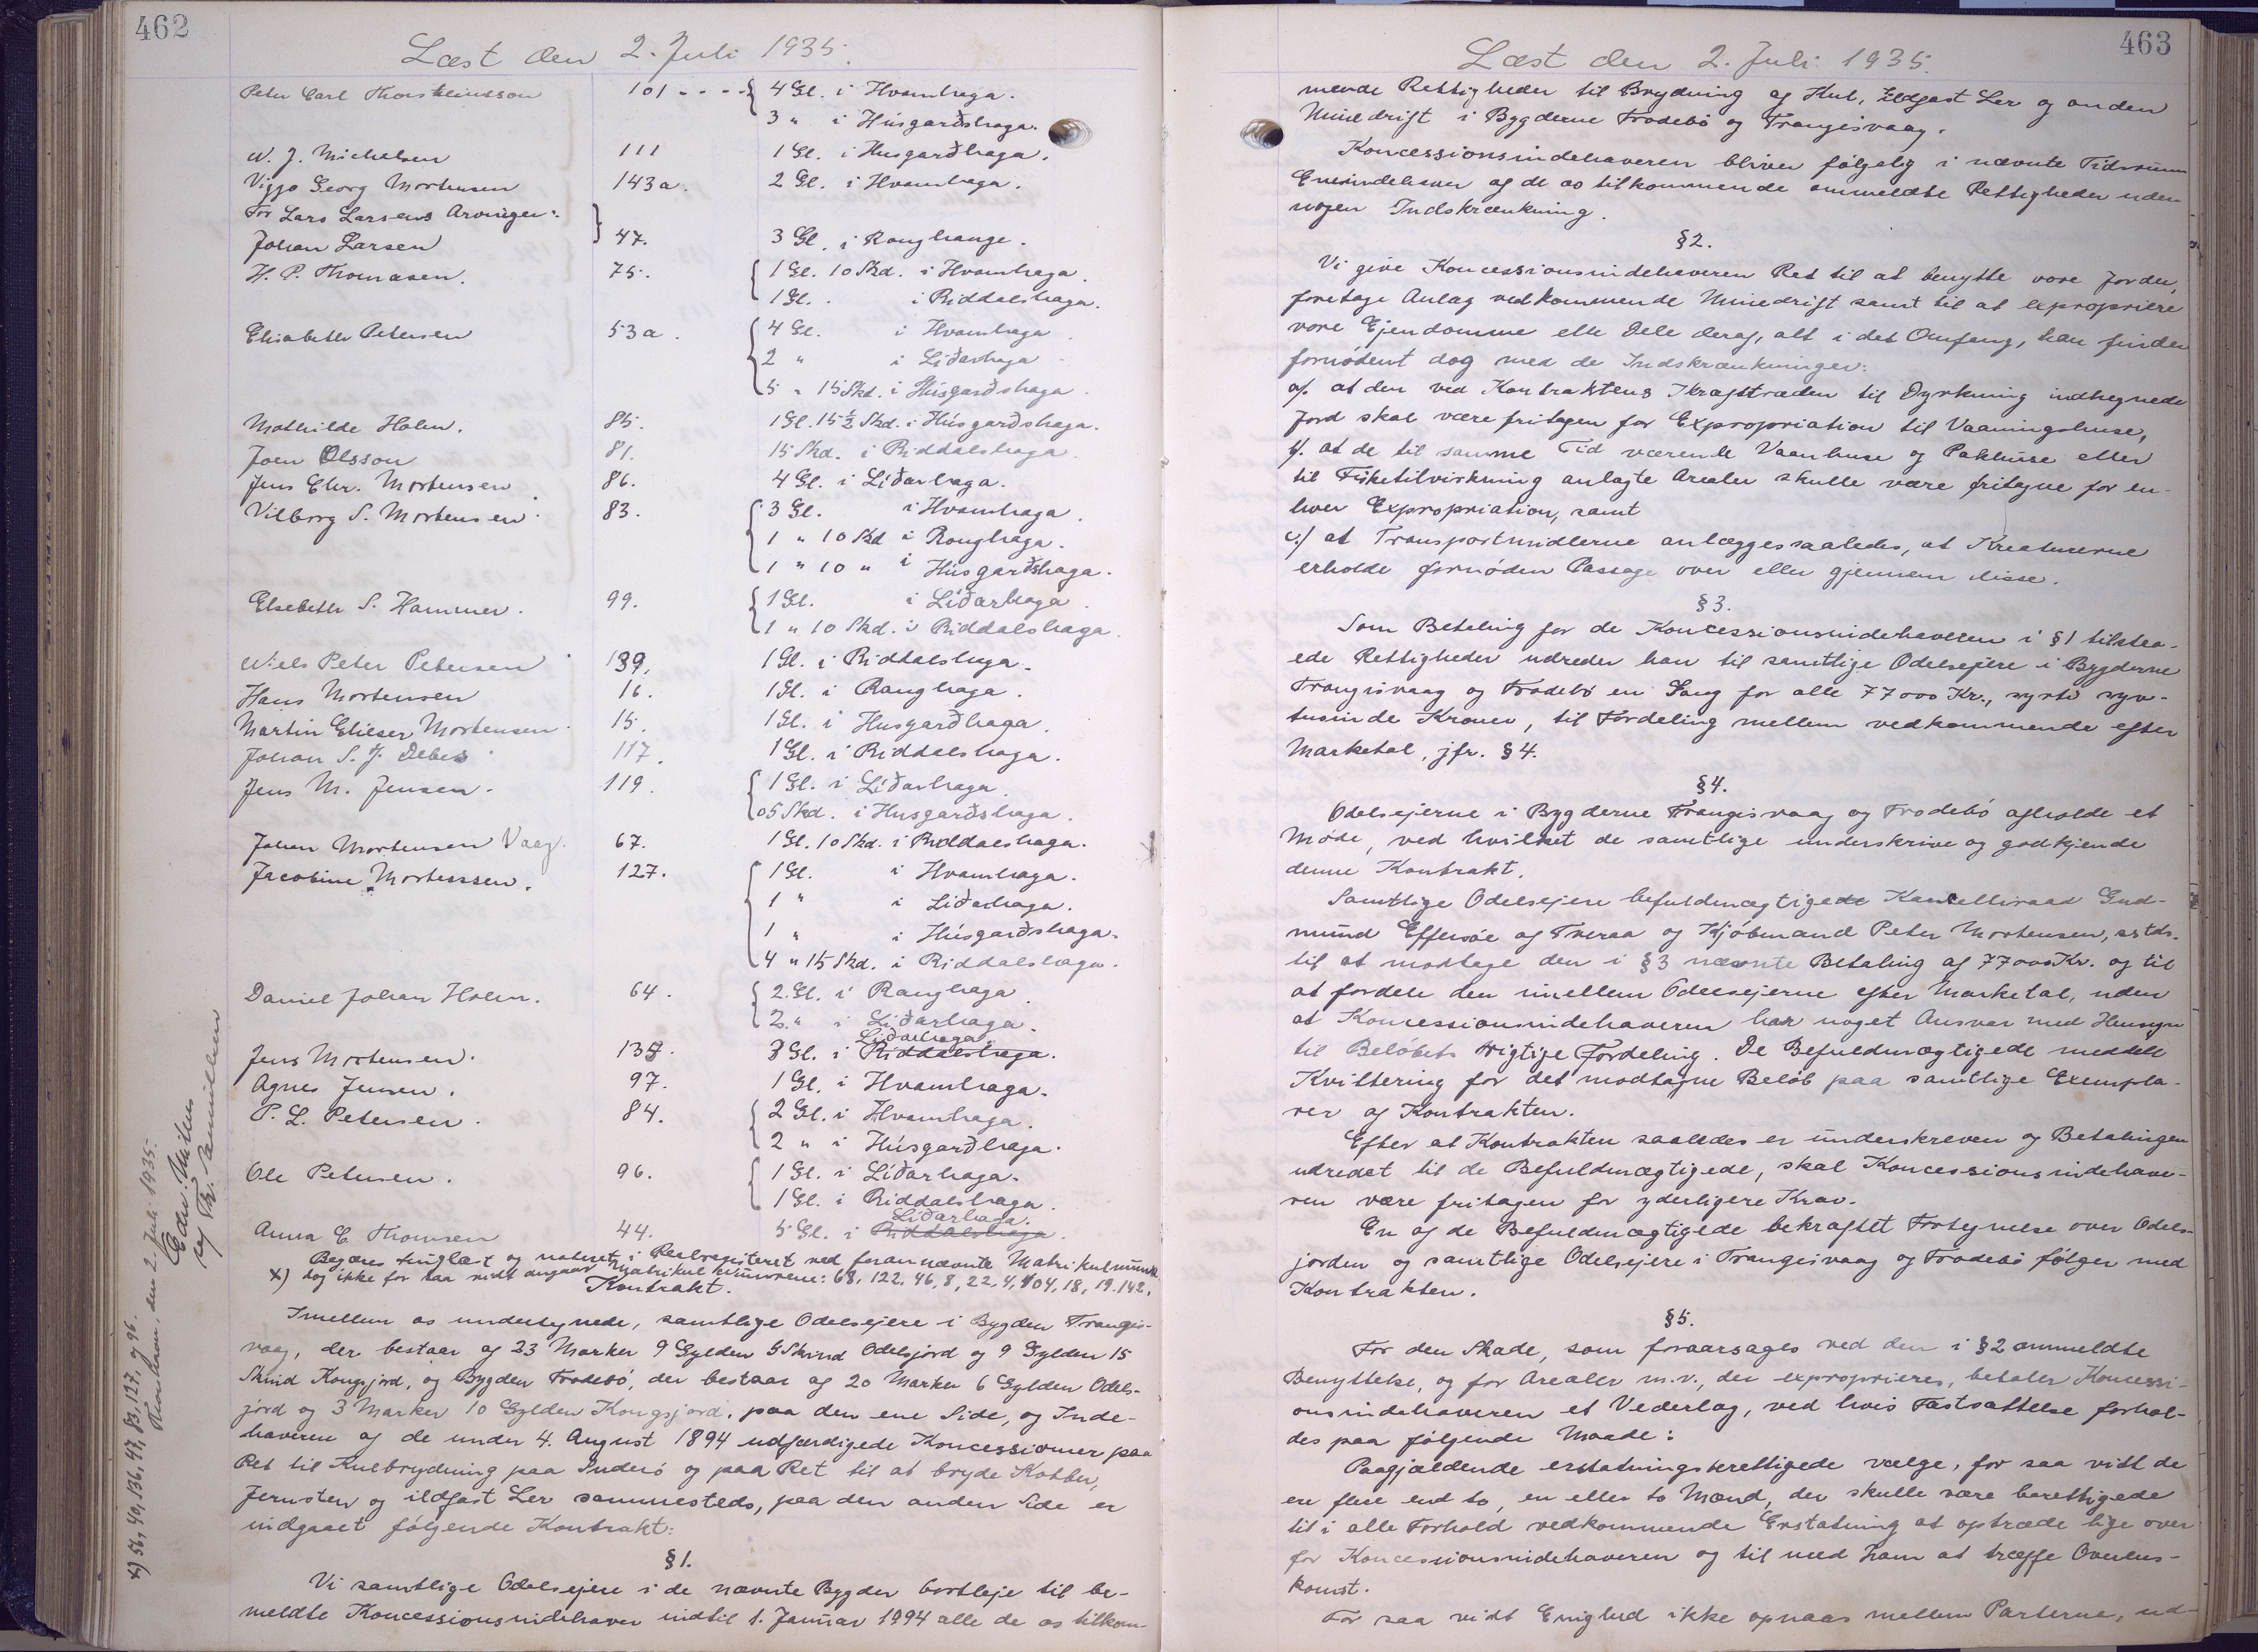 462
Læst den 2. Juli 1935.
Peter Carl Thorsteinsson 101 - - - - { 4 Gl. i Hvamhaga.
3 " i Húsgarðshaga.
W. J. Michelsen 111 1 Gl. i Husgarðhaga.
Viggo Georg Mortensen 143a. 2 Gl. i Hvamhaga.
For Lars Larsens Arvinger: }
Johan Larsen 47. 3 Gl. i Ranghauge.
H. P. Thomasen. 75. { 1 Gl. 10 Skd. i Hvamhaga.
1 Gl. . i Riddalshaga.
Elisabeth Petersen 53a. { 4 Gl. i Hvamhaga
2 " i Líðarhaga
5 " 15 Skd. i Húsgarðshaga.
Mathilde Holm. 85. 1 Gl. 15½ Skd. i Húsgarðshaga.
Joen Olsson 81. 15 Skd. i Riddalshaga.
Jens Chr. Mortensen 86. 4 Gl. i Líðarhaga.
Vilborg S. Mortensen. 83. { 3 Gl. i Hvamhaga.
1 " 10 Skd i Ranghaga.
1 " 10 " i Húsgarðshaga.
Elsebeth S. Hammer. 99. { 1 Gl. i Líðarhaga.
1 " 10 Skd. i Riddalshaga.
Niels Peter Petersen 139. 1 Gl. i Riddalshaga.
Hans Mortensen 16. 1 Gl. i Ranghaga.
Martin Elieser Mortensen 15. 1 Gl. i Husgarðhaga.
Johan S. J. Debes 117. 1 Gl. i Riddalshaga.
Jens M. Jensen. 119. { 1 Gl. i Líðarhaga.
05 Skd. i Husgarðshaga.
Johan Mortensen Vaag. 67. 1 Gl. 10 Skd. i Riddalshaga.
Jacobine Mortensen. 127. { 1 Gl. i Hvamhaga.
1 " i Liðarhaga.
1 " i Húsgarðshaga.
4 " 15 Skd. i Riddalshaga.
Daniel Johan Holm. 64. { 2 Gl. i Ranghaga.
2 " i Liðarhaga.
Líðarhaga.
Jens Mortensen. 135. 3 Gl. i Riddalshaga.
Agnes Jensen. 97. 1 Gl. i Hvamhaga.
P. L. Petersen. 84. { 2 Gl. i Hvamhaga.
2 " i Húsgarðhaga.
Ole Petersen. 96. { 1 Gl. i Líðarhaga.
1 Gl. i Riddalshaga.
Líðarhaga.
Anna E. Thomsen 44. 5 Gl. i Riddalshaga.
Begæres tinglæst og noteret i Realregisteret ved forannævnte Matrikulnumre.
x) dog ikke for saa vidt angaar Matrikul numrene: 68, 122, 46, 8, 22, 4, 104, 18, 19. 142.
Kontrakt.
Imellem os undertegnede, samtlige Odelsejere i Bygden Trangis-
vaag, der bestaar af 23 Marker 9 Gylden 5 Skind Odelsjord og 9 Gylden 15
Skind Kongsjord, og Bygden Frodebö, der bestaar af 20 Marker 6 Gylden Odels-
jord og 3 Marker 10 Gylden Kongsjord, paa den ene Side, og Inde-
haveren af de under 4. August 1894 udfærdigede Koncessioner paa
Ret til Kulbrydning paa Suderö og paa Ret til at bryde Kobber,
Jernsten og ildfast Ler sammesteds, paa den anden Side er
indgaaet følgende Kontrakt:
§1.
Vi samtlige Odelsejere i de nævnte Bygder bortleje til be-
meldte Koncessionsindehaver indtil 1. Januar 1994 alle de os tilkom-
x) 56, 40, 136, 47, 83, 127, og 96.
Thorshavn, den 2. Juli 1935.
Edw. Mitens
og Fr. Samuelsen
463
Læst den 2. Juli 1935.
mende Rettigheder til Brydning af Kul, Ildfast Ler og anden
Minedrift i Bygderne Frodebö og Trangisvaag.
Koncessionsindehaveren bliver følgelig i nævnte Tidsrum
Eneindehaver af de os tilkommende ommeldte Rettigheder uden
nogen Indskrænkning.
§2.
Vi give Koncessionsindehaveren Ret til at benytte vore Jorder,
foretage Anlæg vedkommende Minedrift samt til at expropriere
vore Ejendomme elle Dele deraf, alt i det Omfang, han finder
fornødent dog med de Indskrænkninger:
a/. at den ved Kontraktens Ikrafttræden til Dyrkning indhegnede
Jord skal være fritagen for Expropriation til Vaaningshuse,
b/. at de til samme Tid værende Vaanhuse og Pakhuse eller
til Fisketilvirkning anlagte Arealer skulle være fritagne for en-
hver Expropriation, samt
c/ at Transportmidlerne anlægges saaledes, at Kreaturerne
erholde fornøden Passage over eller gjennem disse.
§3.
Som Betaling for de Koncessionsindehaveren i §1 tilstaa-
ede Rettigheder udreder han til samtlige Odelsejere i Bygderne
Trangisvaag og Frodebö en Gang for alle 77000 Kr., syvti syv-
tusinde Kroner, til Fordeling mellem vedkommende efter
Marketal, jfr. §4.
§4.
Odelsejerne i Bygderne Trangisvaag og Frodebö afholde et
Møde, ved hvilket de samtlige underskrive og godkjende
denne Kontrakt.
Samtlige Odelsejere befuldmægtigede Kancelliraad Gud-
mund Effersöe af Tveraa og Kjöbmand Peter Mortensen, sstds.
til at modtage den i §3 nævnte Betaling af 77000 Kr. og til
at fordele den imellem Odelsejerne efter Marketal, uden
at Koncessionsindehaveren har noget Ansvar med Hensyn
til Beløbets rigtige Fordeling. De Befuldmægtigede meddele
Kvittering for det modtagne Beløb paa samtlige Exempla-
rer af Kontrakten.
Efter at Kontrakten saaledes er underskreven og Betalingen
udredet til de Befuldmægtigede, skal Koncessionsindehave-
ren være fritagen for yderligere Krav.
En af de Befuldmægtigede bekræftet Fortegnelse over Odels-
jorden og samtlige Odelsejere i Trangisvaag og Frodebö følger med
Kontrakten.
§5.
For den Skade, som foraarsages ved den i §2 ommeldte
Benyttelse, og for Arealer m.v., der exproprieres, betaler Koncessi-
onsindehaveren et Vederlag, ved hvis Fastsættelse forhol-
des paa følgende Maade:
Paagjældende erstatningsberettigede vælge, for saa vidt de
ere flere end to, en eller to Mænd, der skulle være berettigede
til i alle Forhold vedkommende Erstatning at optræde lige over
for Koncessionsindehaveren og til med ham at træffe Overens-
komst.
For saa vidt Enighed ikke opnaas mellem Parterne, ud-